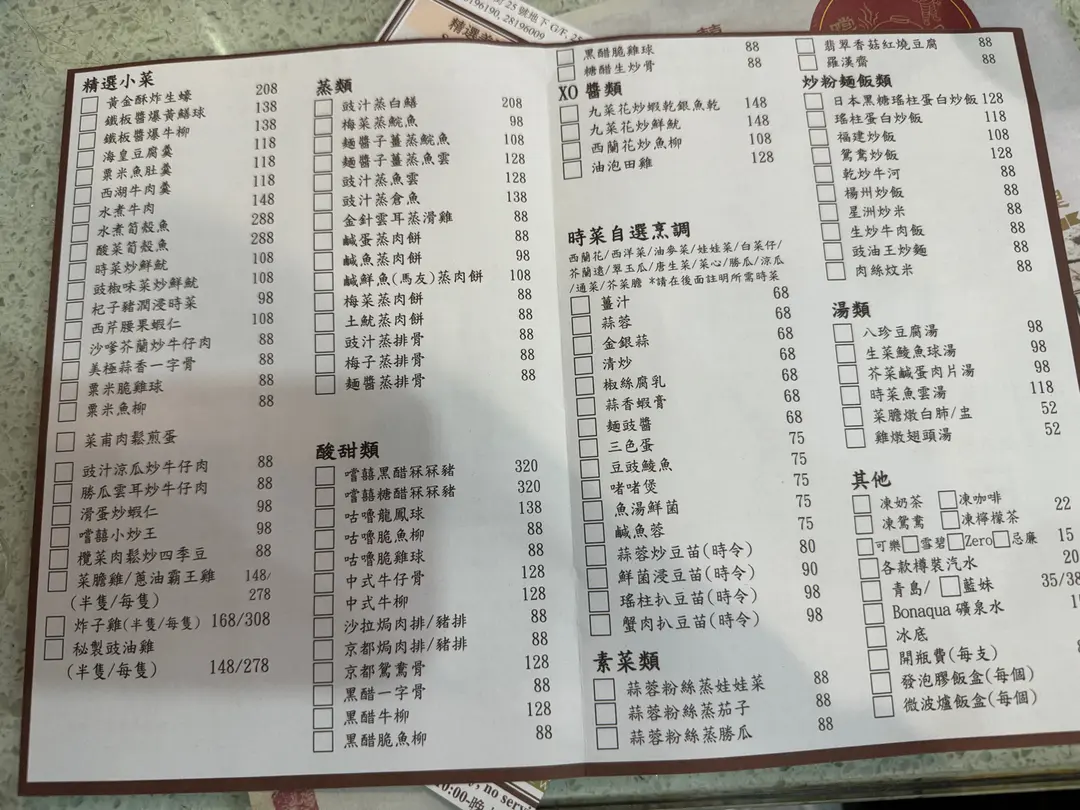 號地下 G/F, 25
28196190, 28196009
精選小菜
黃金酥炸生蠔 208
鐵板醬爆黃鱔球 138
鐵板醬爆牛柳 138
海皇豆腐羹 118
粟米魚肚羹 118
西湖牛肉羹 118
水煮牛肉 148
水煮筍殼魚 288
酸菜筍殼魚 288
時菜炒鮮魷 108
豉椒味菜炒鮮魷 108
杞子豬潤浸時菜 98
西芹腰果蝦仁 108
沙嗲芥蘭炒牛仔肉 88
美極蒜香一字骨 88
粟米脆雞球 88
粟米魚柳 88
菜甫肉鬆煎蛋
豉汁涼瓜炒牛仔肉 88
勝瓜雲耳炒牛仔肉 88
滑蛋炒蝦仁 98
嚐囍小炒王 98
欖菜肉鬆炒四季豆 88
菜膽雞/蔥油霸王雞 148/
(半隻/每隻) 278
炸子雞(半隻/每隻) 168/308
秘製豉油雞
(半隻/每隻) 148/278
蒸類
豉汁蒸白鱔 208
梅菜蒸鯇魚 98
麵醬子薑蒸鯇魚 108
麵醬子薑蒸魚雲 128
豉汁蒸魚雲 128
豉汁蒸倉魚 138
金針雲耳蒸滑雞 88
鹹蛋蒸肉餅 88
鹹魚蒸肉餅 98
鹹鮮魚(馬友)蒸肉餅 108
梅菜蒸肉餅 88
土魷蒸肉餅 88
豉汁蒸排骨 88
梅子蒸排骨 88
麵醬蒸排骨 88
酸甜類
嚐囍黑醋冧冧豬 320
嚐囍糖醋冧冧豬 320
咕嚕龍鳳球 138
咕嚕脆魚柳 88
咕嚕脆雞球 88
中式牛仔骨 128
中式牛柳 128
沙拉焗肉排/豬排 88
京都焗肉排/豬排 88
京都鴛鴦骨 128
黑醋一字骨 88
黑醋牛柳 128
黑醋脆魚柳 88
黑醋脆雞球 88
糖醋生炒骨 88
XO 醬類
九菜花炒蝦乾銀魚乾 148
九菜花炒鮮魷 148
西蘭花炒魚柳 108
油泡田雞 128
時菜自選烹調
西蘭花/西洋菜/油麥菜/娃娃菜/白菜仔/
芥蘭遠/翠玉瓜/唐生菜/菜心/勝瓜/涼瓜
/通菜/芥菜膽 *請在後面註明所需時菜
薑汁 68
蒜蓉 68
金銀蒜 68
清炒 68
椒絲腐乳 68
蒜香蝦膏 68
麵豉醬 68
三色蛋 75
豆豉鯪魚 75
啫啫煲 75
魚湯鮮菌 75
鹹魚蓉 75
蒜蓉炒豆苗(時令) 80
鮮菌浸豆苗(時令) 90
瑤柱扒豆苗(時令) 98
蟹肉扒豆苗(時令) 98
素菜類
蒜蓉粉絲蒸娃娃菜 88
蒜蓉粉絲蒸茄子 88
蒜蓉粉絲蒸勝瓜 88
翡翠香菇紅燒豆腐 88
羅漢齋 88
炒粉麵飯類
日本黑糖瑤柱蛋白炒飯 128
瑤柱蛋白炒飯 118
福建炒飯 108
鴛鴦炒飯 128
乾炒牛河 88
楊州炒飯 88
星洲炒米 88
生炒牛肉飯 88
豉油王炒麵 88
肉絲炆米 88
湯類
八珍豆腐湯 98
生菜鯪魚球湯 98
芥菜鹹蛋肉片湯 98
時菜魚雲湯 118
菜膽燉白肺/盅 52
雞燉翅頭湯 52
其他
凍奶茶 凍咖啡 22
凍鴛鴦 凍檸檬茶
可樂 雪碧 Zero 忌廉 15
各款樽裝汽水 20
青島/ 藍妹 35/38
Bonaqua 礦泉水
冰底
開瓶費(每支)
發泡膠飯盒(每個)
微波爐飯盒(每個)